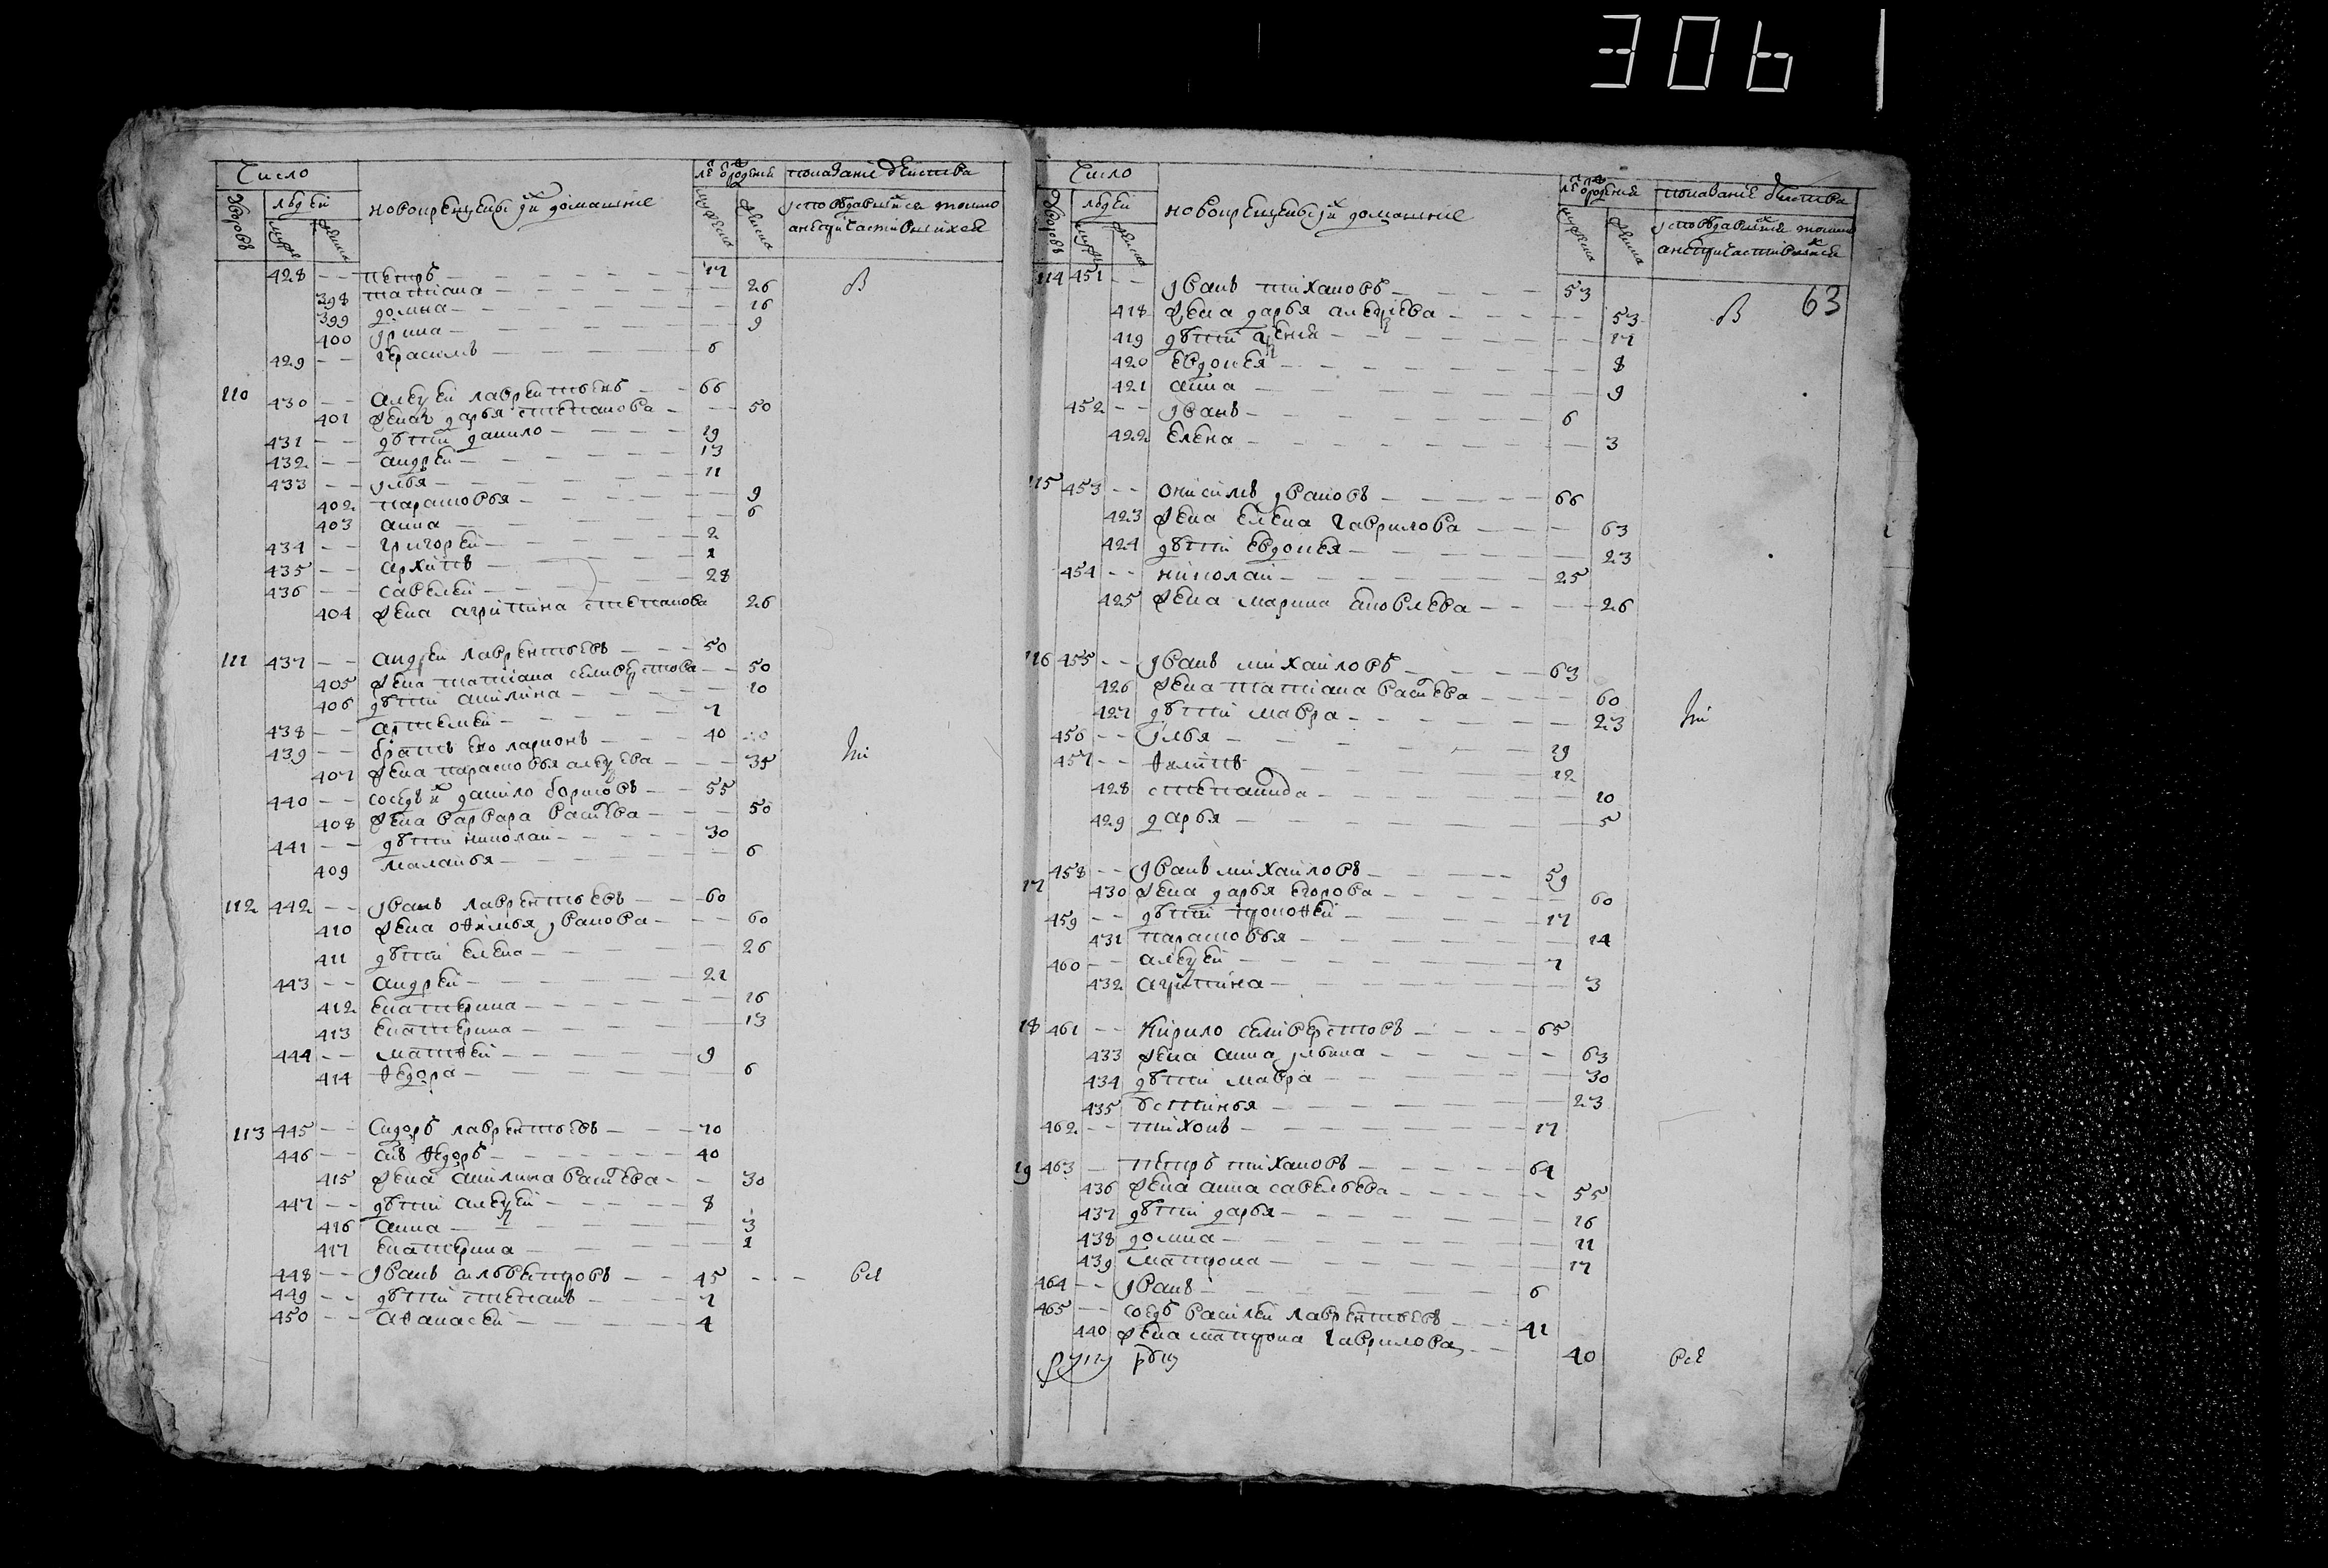 306
Число
дворовъ
людей
муж
женска
новокрещены й их домашние
лѣ от рождения
мужеска
женска
показание действа
исповедавшихся токмо
а неприча­стившихся
428 -- петръ 17
398 татиана 26
399 домна 16
400 ирина 9
429 -- герасимъ 6
В
110 430 -- алеѯей лаврентьевъ 66
401 жена ево дарья степанова 50
431 -- дѣти данило 19
432 -- андрей 13
433 -- илья 11
402 парасковья 9
403 анна 6
434 -- григорей 2
435 -- архипъ 1
436 -- савелей 28
404 жена агрипина степанова 26
111 437 -- андрей лаврентьевъ 50
405 жена татиана селиверстова 50
406 дѣти акилина 10
438 -- артемей 7
439 -- братъ ево ларионъ 40
407 жена парасковья алеѯева 35
440 -- соседъ их данило борисовъ 55
408 жена варвара васильева 50
441 -- дѣти николай 30
409 маланья 6
112 442 -- иванъ лаврентьевъ 60
410 жена офимья иванова 60
411 дѣти елена 26
443 -- андрей 21
412 екатерина 16
413 екатерина 13
444 -- матфей 9
414 федора 6
113 445 -- сидоръ лаврентьевъ 70
446 -- снъ федоръ 40
415 жена акилина васильева 30
447 -- дѣти алеѯей 8
416 анна 3
417 екатерина 1
448 -- иванъ сильвестровъ 45
449 -- дѣти степанъ 7
450 -- афанасей 4
Число
дворовъ
людей
муж
женска
новокрещены й их домашние
лѣ от рождения
мужеска
женска
показание действа
исповедавшихся токмо
а непричастившихся
63
114 451 -- иванъ тихановъ 53
418 жена дарья алеѯиева 53
419 дѣти ѯения 17
420 евдокея 8
421 анна 9
452 -- иванъ 6
422 елена 3
В
115 453 -- онисимъ ивановъ 66
423 жена елена гаврилова 63
424 дѣти евдокея 23
454 -- николай 25
425 жена марина яковлева 26
116 455 -- иванъ михайловъ 63
426 жена татиана васильева 60
427 дѣти мавра 23
456 -- илья 19
457 -- филипъ 12
428 степанида 10
429 дарья 5
17 458 -- иванъ михайловъ 59
430 жена дарья егорова 60
459 -- дѣти прокофей 17
431 парасковья 14
460 -- алеѯей 7
432 агрипина 3
18 461 -- кирило селиверстовъ 65
433 жена анна ильина 63
434 дѣти мавра 30
435 устинья 23
462 -- тихонъ 17
19 463 -- петръ тихановъ 61
436 жена анна савельева 55
437 дѣти дарья 16
438 домна 11
439 матрона 17
464 -- иванъ 6
465 -- соседъ василей лаврентьевъ 41
440 жена матрона гаврилова 40